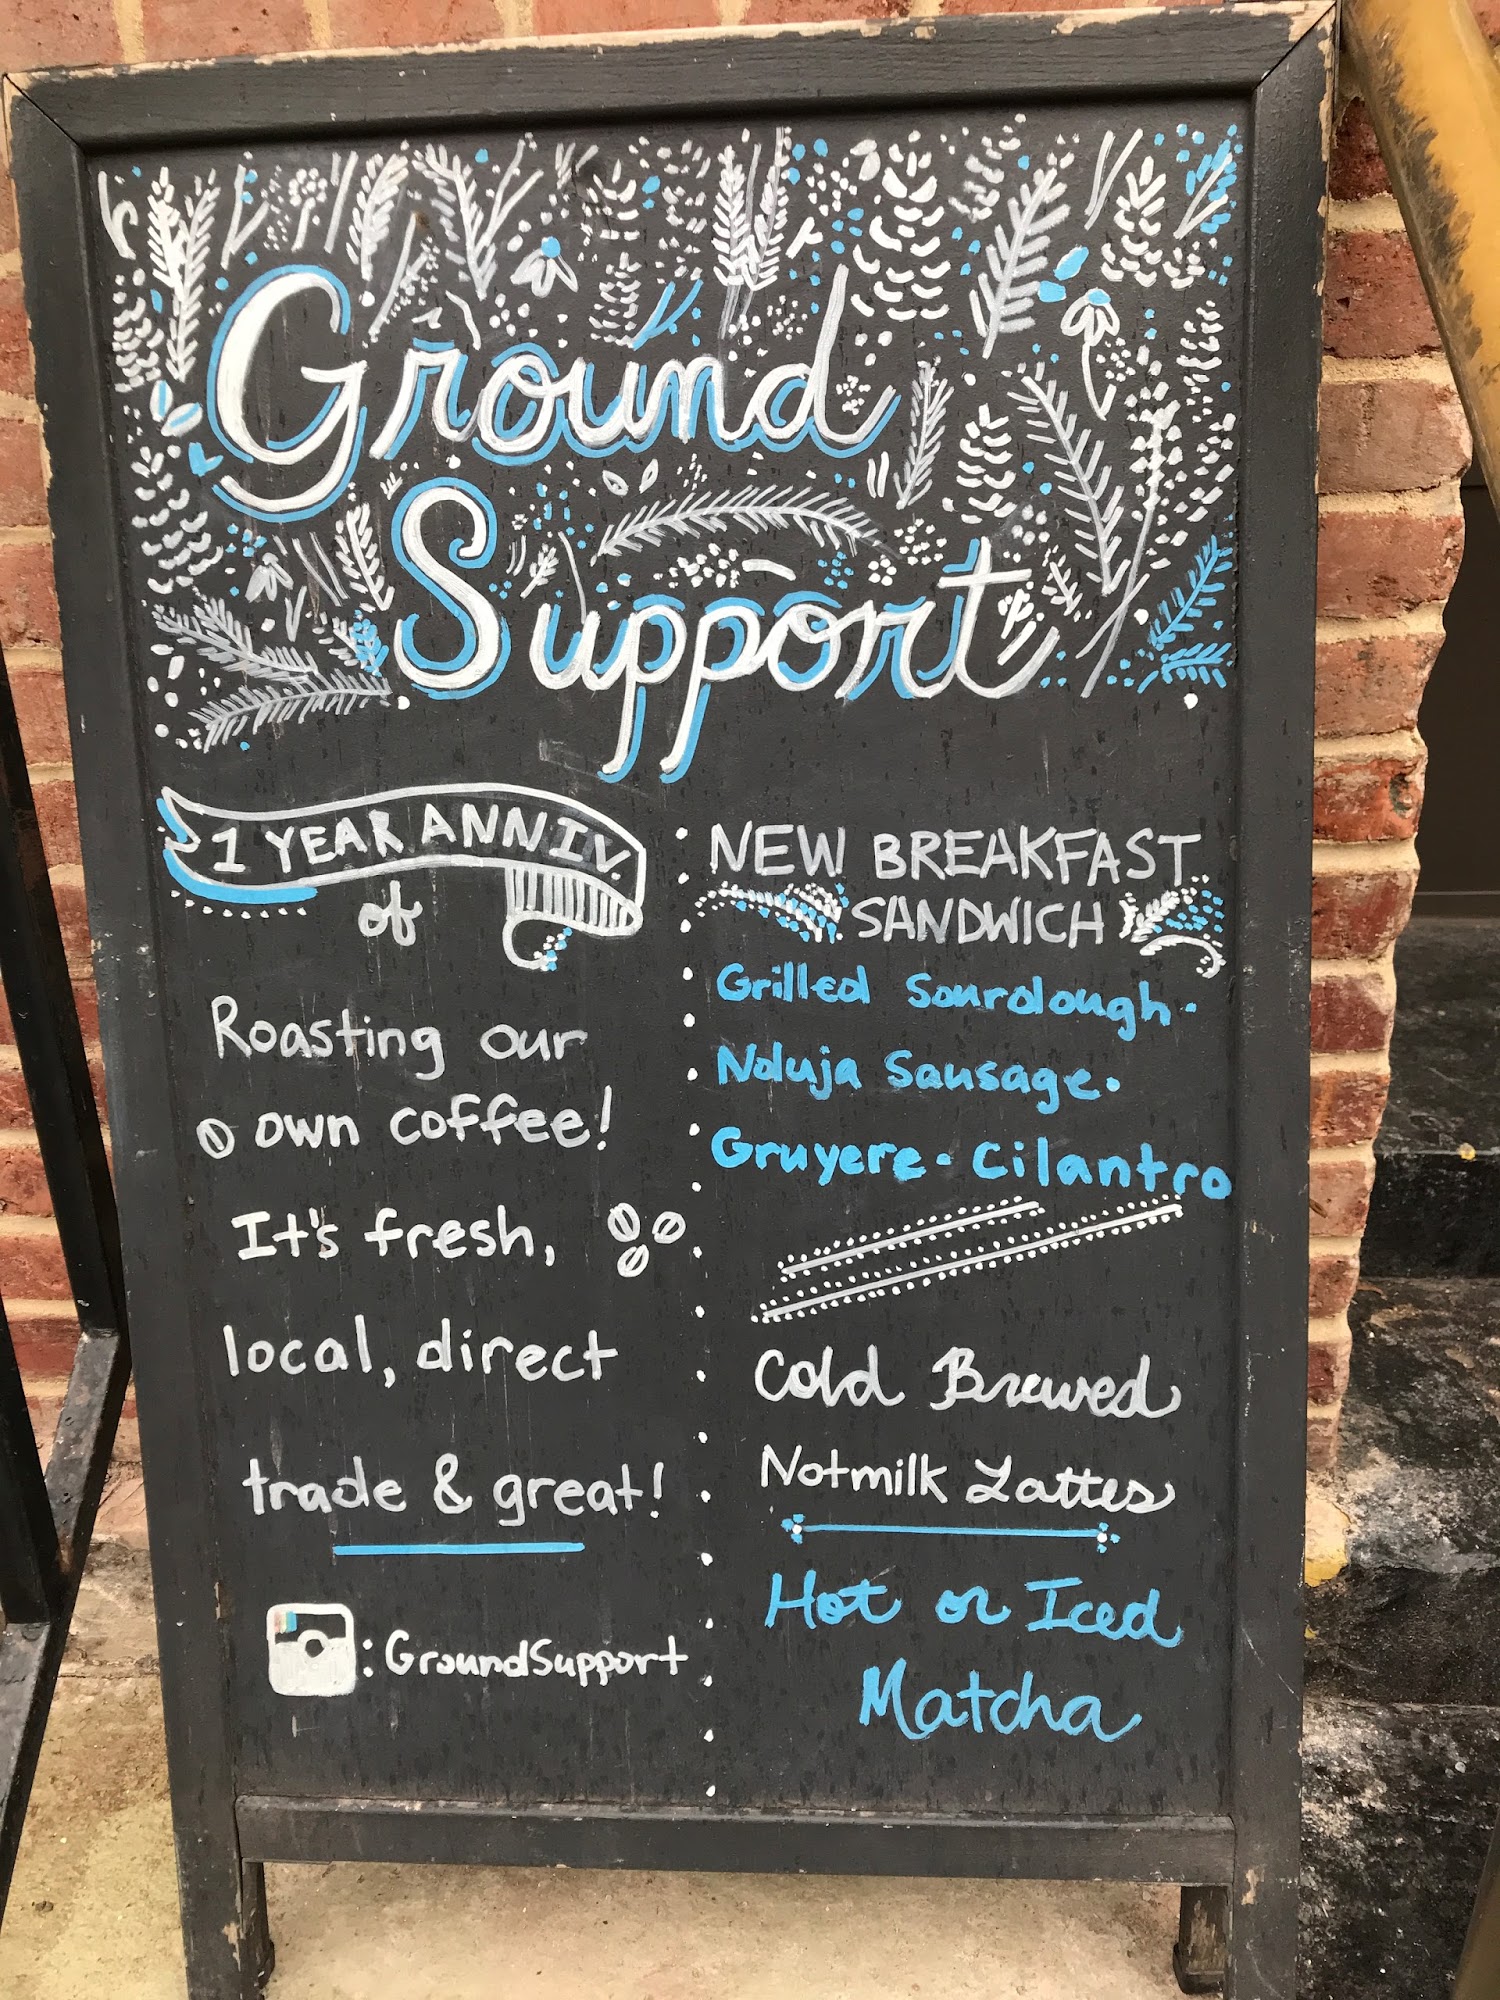 Ground
Support
1 YEAR ANNIV.
of
Roasting our
own coffee!
It's fresh,
local, direct
trade & great!
: GroundSupport
NEW BREAKFAST
SANDWICH
Grilled Sourdough.
Noluja Sausage.
Gruyere. Cilantro
Cold Brewed
Notmilk Lattes
Hot or Iced
Matcha